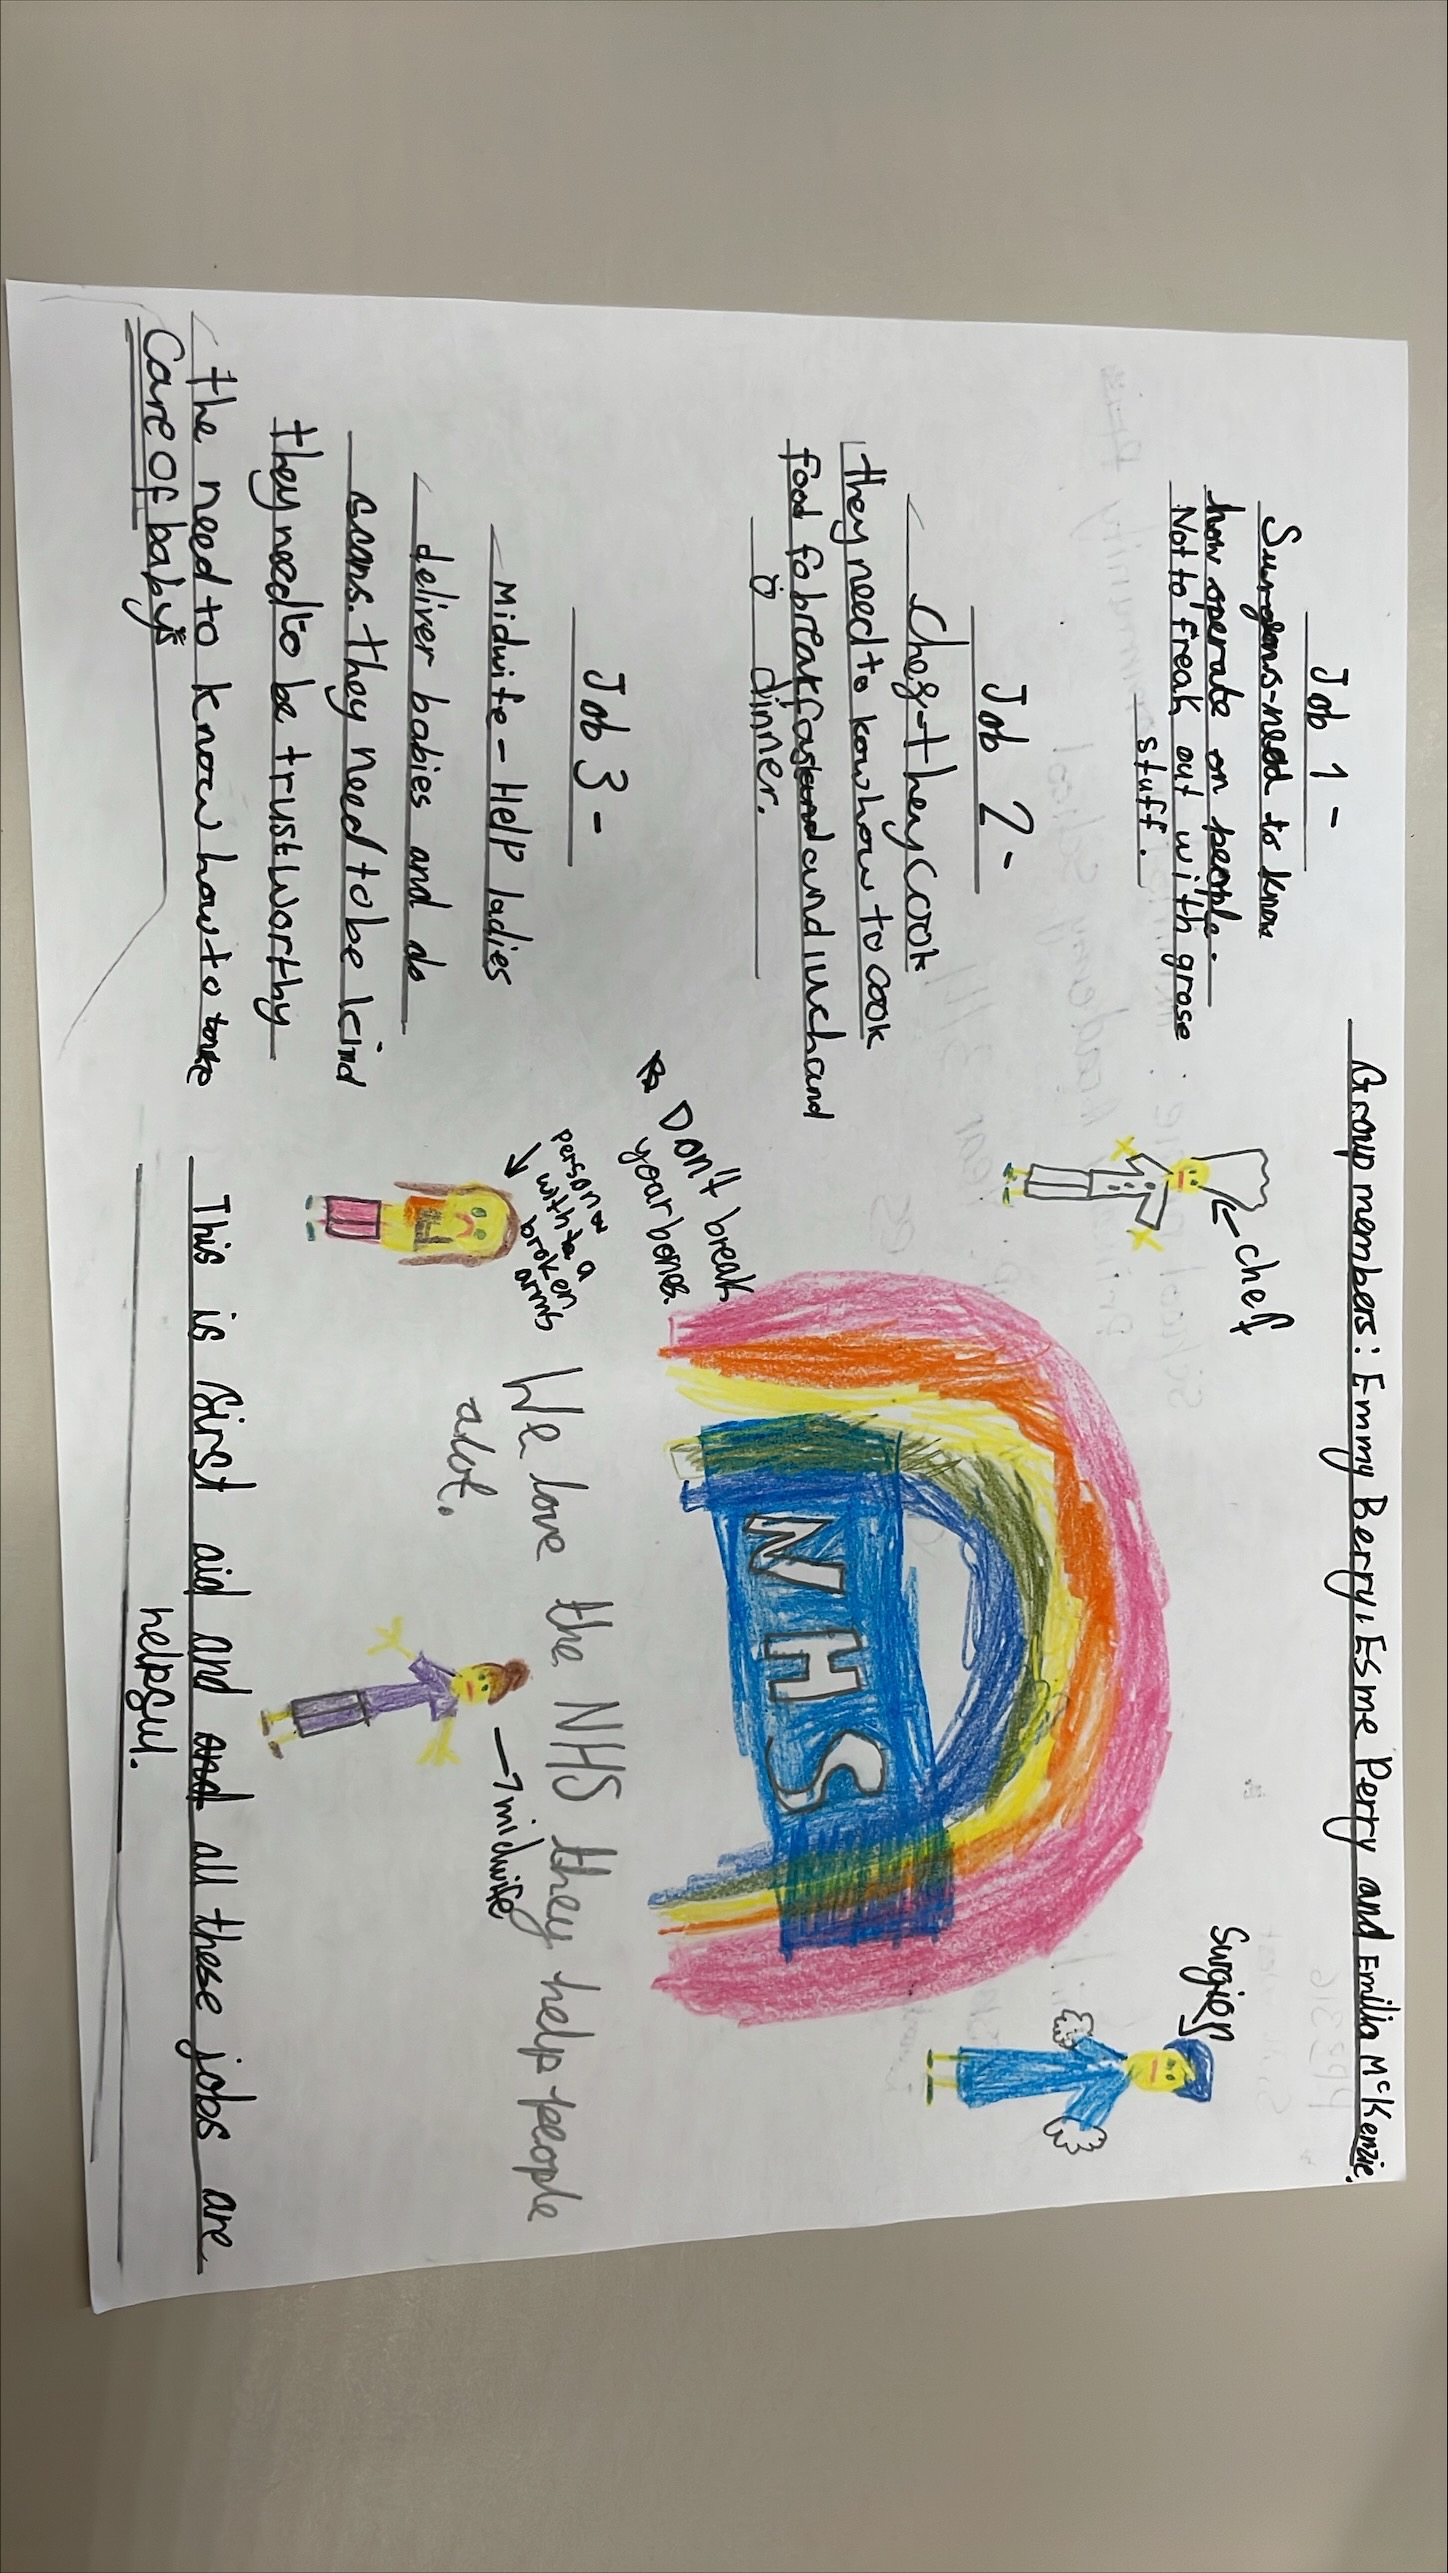 Group members: Emmy Berry, Esme Perry and Emilia McKenzie.
Job 1 -
Surgeons - need to know
how operate on people.
Not to freak out with grose
stuff.
Job 2 -
Chef - they cook
they need to kow how to cook
food fo breakfast and lunch and
dinner.
Job 3 -
Midwife - Help ladies
deliver babies and do
scans. they need to be kind
they need to be trustworthy
the need to know how to take
care of babys
chef
surgies
NHS
Don't break
your bones.
person
with a
broken
arm
We love the NHS they help people
alot.
midwife
This is first aid and and all these jobs are
helpful.